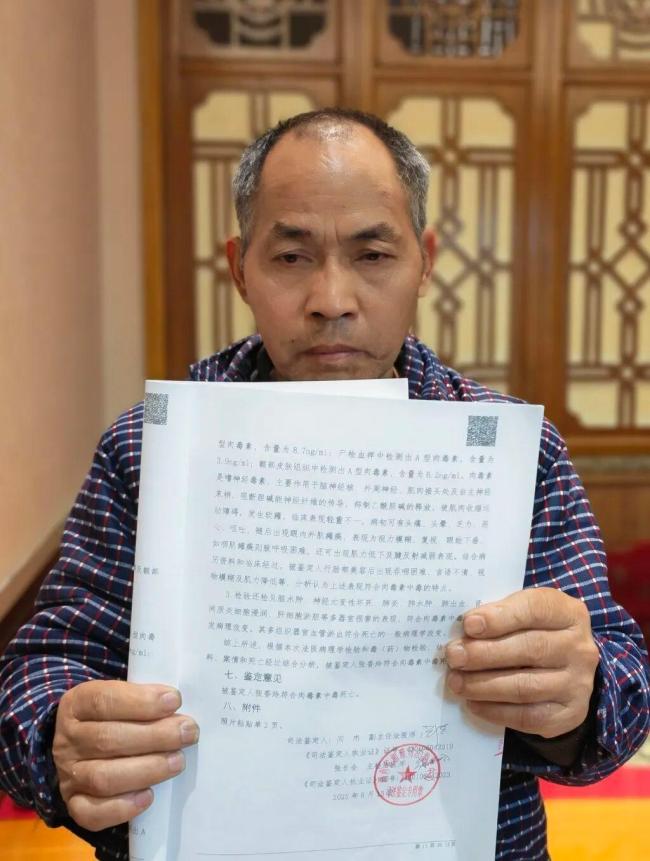 型肉毒素，含量为8.7ng/ml；尸检血样中检测出A型肉毒素，含量为
3.9ng/ml；颞部皮肤组织中检测出A型肉毒素，含量为6.2ng/ml。肉毒素
是嗜神经毒素，主要作用于脑神经核、外周神经、肌肉接头处及自主神经
末梢，阻断胆碱能神经纤维的传导，抑制乙酰胆碱的释放，使肌肉收缩运
动障碍，发生软瘫，临床表现轻重不一。病初可有头痛、头晕、乏力、恶
心、呕吐，随后出现眼内外肌瘫痪，表现为视力模糊、复视、眼睑下垂，
如咽肌瘫痪则致呼吸困难，还可出现肌力低下及腱反射减弱表现。结合病
历资料和临床经过，被鉴定人行脸部美容后出现吞咽困难、言语不清、视
物模糊及肌力降低等，分析认为上述表现符合肉毒素中毒的特点。
3.检验还检见脑水肿、神经元变性坏死、肺炎、肺水肿、肺出血、
间质炎细胞浸润、肝细胞淤胆等多器官损害的表现，符合肉毒素中毒
发病理改变。其多组织器官血管淤血符合死亡的一般病理学改变。
综上所述，根据本次法医病理学检验和毒（药）物检验，结
料、案情和死亡经过综合分析，被鉴定人张香玲符合肉毒素中毒死
七、鉴定意见
被鉴定人张香玲符合肉毒素中毒死亡。
八、附件
照片粘贴单2页。
司法鉴定人：闪 副主任法医师
《司法鉴定人执业证》证
张长全 主
《司法鉴定人执业证》
2025年8月
及颞部
型肉毒
ng/ml；
出A